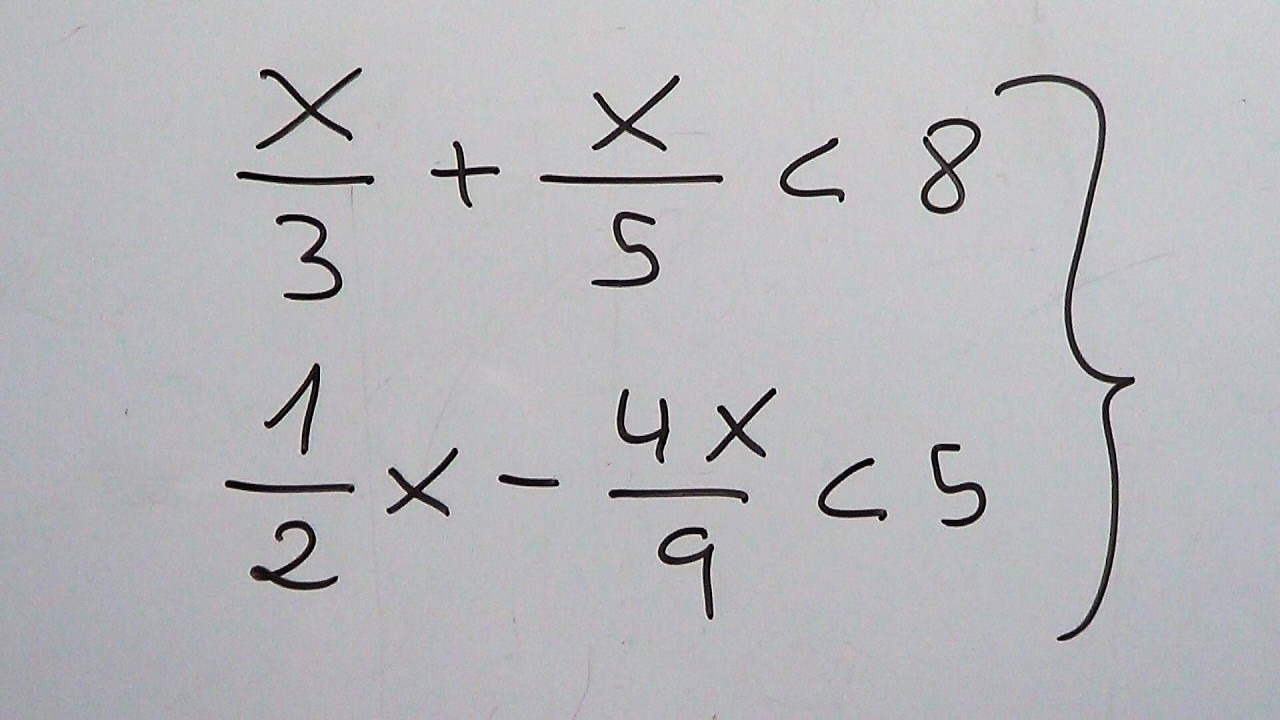 x/3 + x/5 < 8
1/2 x - 4x/9 < 5